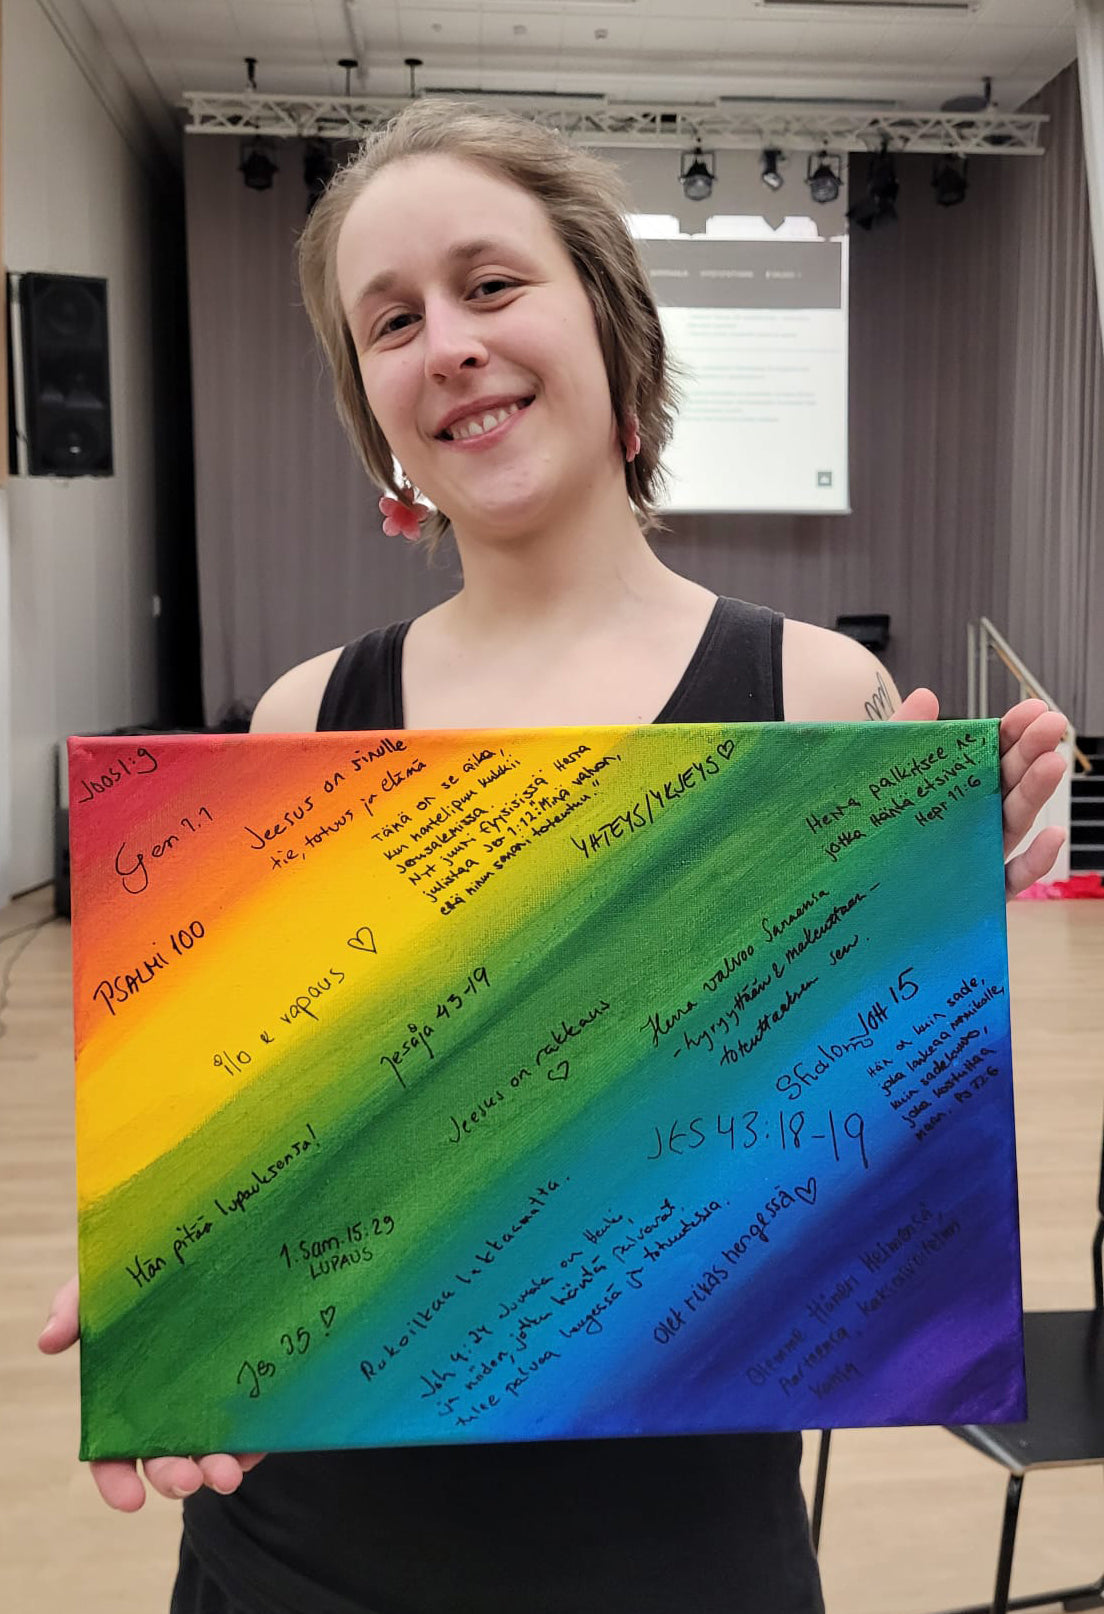 Joos 1:9
Gen 1.1
PSALMI 100
Jeesus on sinulle
tie, totuus ja elämä
Tämä on se aika,
kun mantelipuu kukkii
Jerusalemissa.
Nyt juuri fyysisissä. Herra
julistaa Jer 1:12: "Minä valvon,
että minun sanani toteutuu."
YHTEYS/YKSEYS ♡
Herra palkitsee ne,
jotka Häntä etsivät
Hepr 11:6
ilo & vapaus ♡
Jesaja 43-19
Jeesus on rakkaus
♡
Herra valvoo Sanaansa
- hyryyttään & toteuttaen -
toteuttaaksen sen.
Shalom JOH 15
Hän on kuin sade,
joka lankeaa nurmikolle,
kuin sadekuuro,
joka kostuttaa
maan. Ps 72:6
JES 43:18-19
Hän pitää lupauksensa!
1. Sam. 15:29
LUPAUS
Jes 35 !♡
Rukoilkaa lakkaamatta.
Joh 4:24 Jumala on Henki,
ja niiden, jotka häntä palvovat
tulee palvoa hengessä ja totuudessa.
Olet rikas hengessä ♡
Olemme Hänen